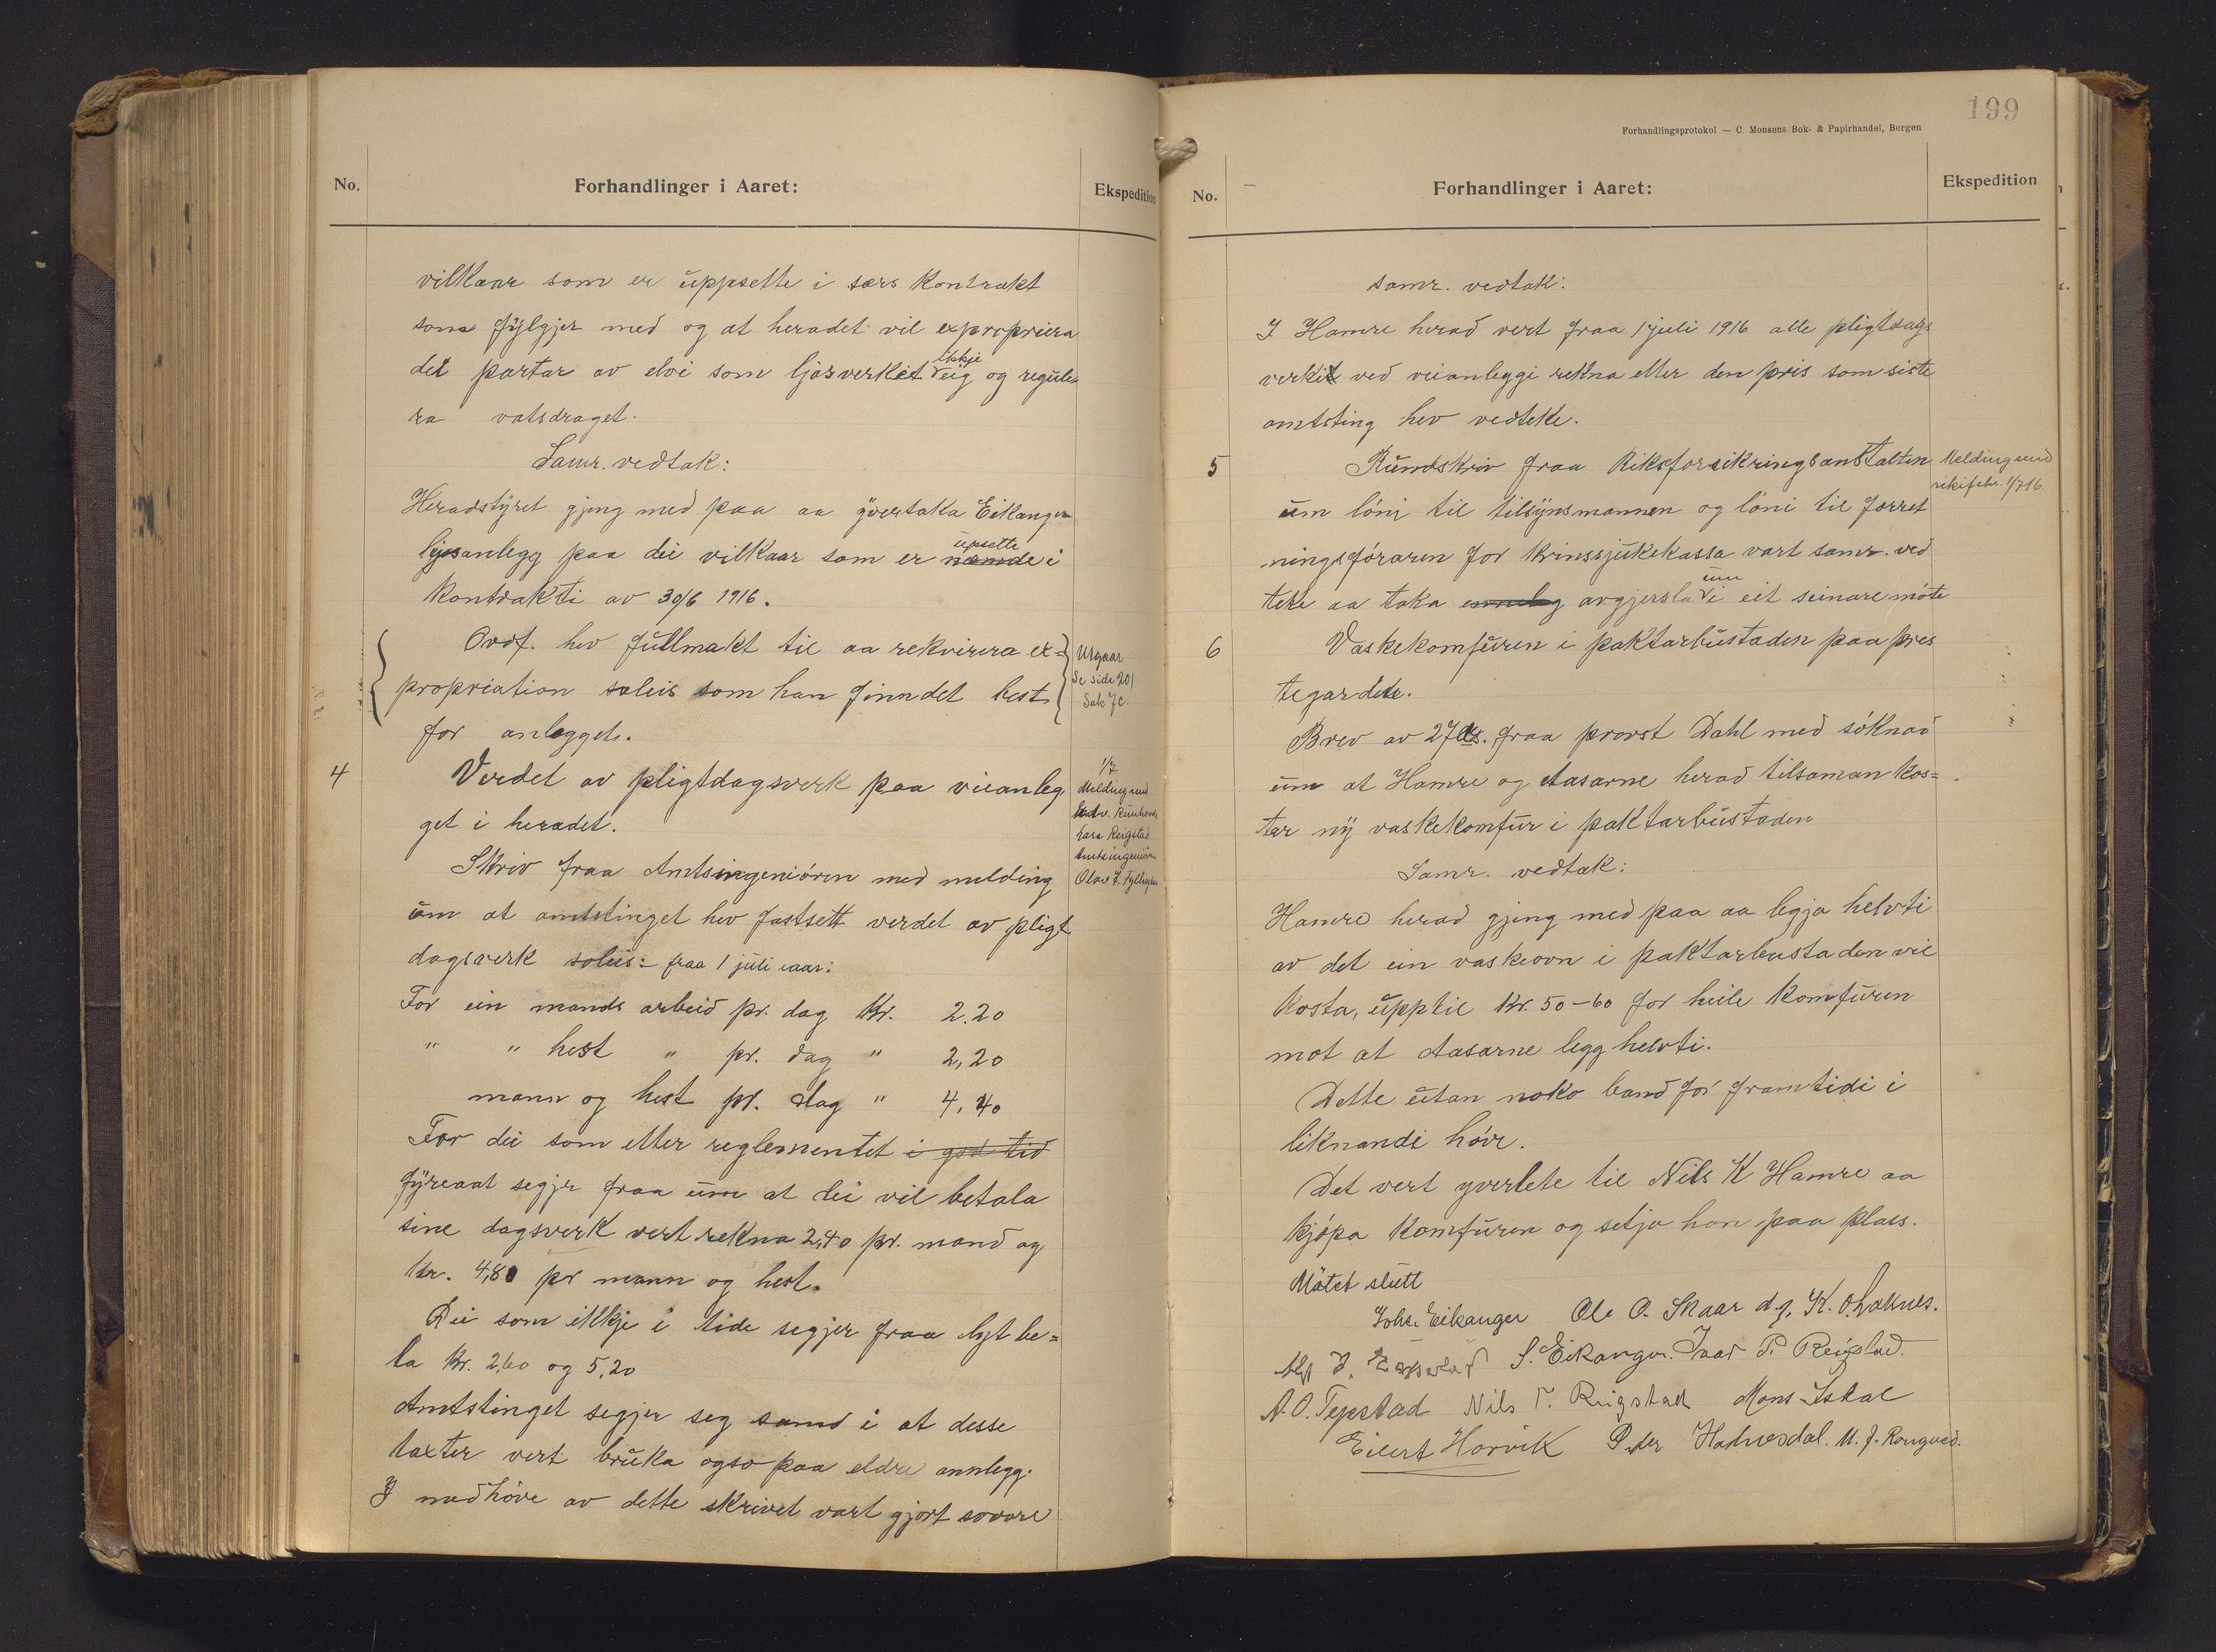 No.
Forhandlinger i Aaret:
Ekspedition
vilkaar som er uppsette i særs kontrakt
som fylgjer med og at heradet vil expropriera
dei partar av elvi som ljosverket ikkje eig og regule-
ra vatsdraget.
Samr. vedtak:
Heradstyret gjeng med paa aa yvertaka Eikanger
ljosanlegg paa dei vilkaar som er nemnde upsette i
kontrakti av 30/6 1916.
Ordf. hev fullmakt til aa rekvirera ex=
propriation soleis som han finn det best
for anlegget.
Utgaar
Se side 201
Sak 7c
4
Verdet av pligtdagsverk paa veianleg
get i heradet.
1/7
Melding send
Lars Reigstad
Amtsingeniören
Skriv fraa Amtsingeniören med melding
um at amtstinget hev fastsett verdet av pligt
dagsverk soleis: fraa 1 juli iaar:
For ein mands arbeid pr. dag Kr. 2.20
" " hest " pr. dag " 2,20
mann og hest pr. dag " 4,40
For dei som etter reglementet i god tid
fyreaat segjer fraa um at dei vil betala
sine dagsverk vert rekna 2,40 pr. mand og
Kr. 4,80 pr mann og hest.
Dei som ikkje i tide segjer fraa lyt be=
ta Kr. 2,60 og 5,20
Amtstinget segjer seg samd i at desse
taxter vert bruka ogso paa eldre annlegg.
I medhöve av dette skrivet vart gjort sovore
199
Forhandlingsprotokol — C. Monsens Bok- & Papirhandel, Bergen
No.
Forhandlinger i Aaret:
Ekspedition
samr. vedtak:
I Hamre herad vert fraa 1 juli 1916 alle pligtdags
verki ved veianleggi rekna etter den pris som siste
amtsting hev vedteke.
5
Rundskriv fraa Riksforsikringsanstalten
Melding send
1/7 16
um löni til tilsynsmannen og löni til forret
ningsföraren for krinssjukekassa vart samr. ved
teke aa taka avgjersla um i eit seinare möte
6
Vaskekomfuren i paktarbustaden paa pres
tegardete.
Brev av 27 ds. fraa provst Dahl med söknad
um at Hamre og Aasarne herad tilsaman kos=
tar ny vaskekomfur i paktarbustaden
Samr. vedtak:
Hamre herad gjeng med paa aa legja helvti
av det ein vaskeovn i paktarbustaden vil
kosta, upptil Kr. 50-60 for heile komfuren
mot at Aasarne legg helvti.
Dette utan noko band for framtidi i
liknandi höve.
Det vert yverlete til Nils K Hamre aa
kjöpa komfuren og setja han paa plass.
Mötet slutt
Johs. Eikanger Ole O. Skaar d.y. K. O. Loknes.
S. Eikanger. Ivar P. Reigstad.
A. O. Tepstad Nils T. Reigstad Mons Isdal
Eilert Horvik Peder Halvesdal. M. J. Rongved.